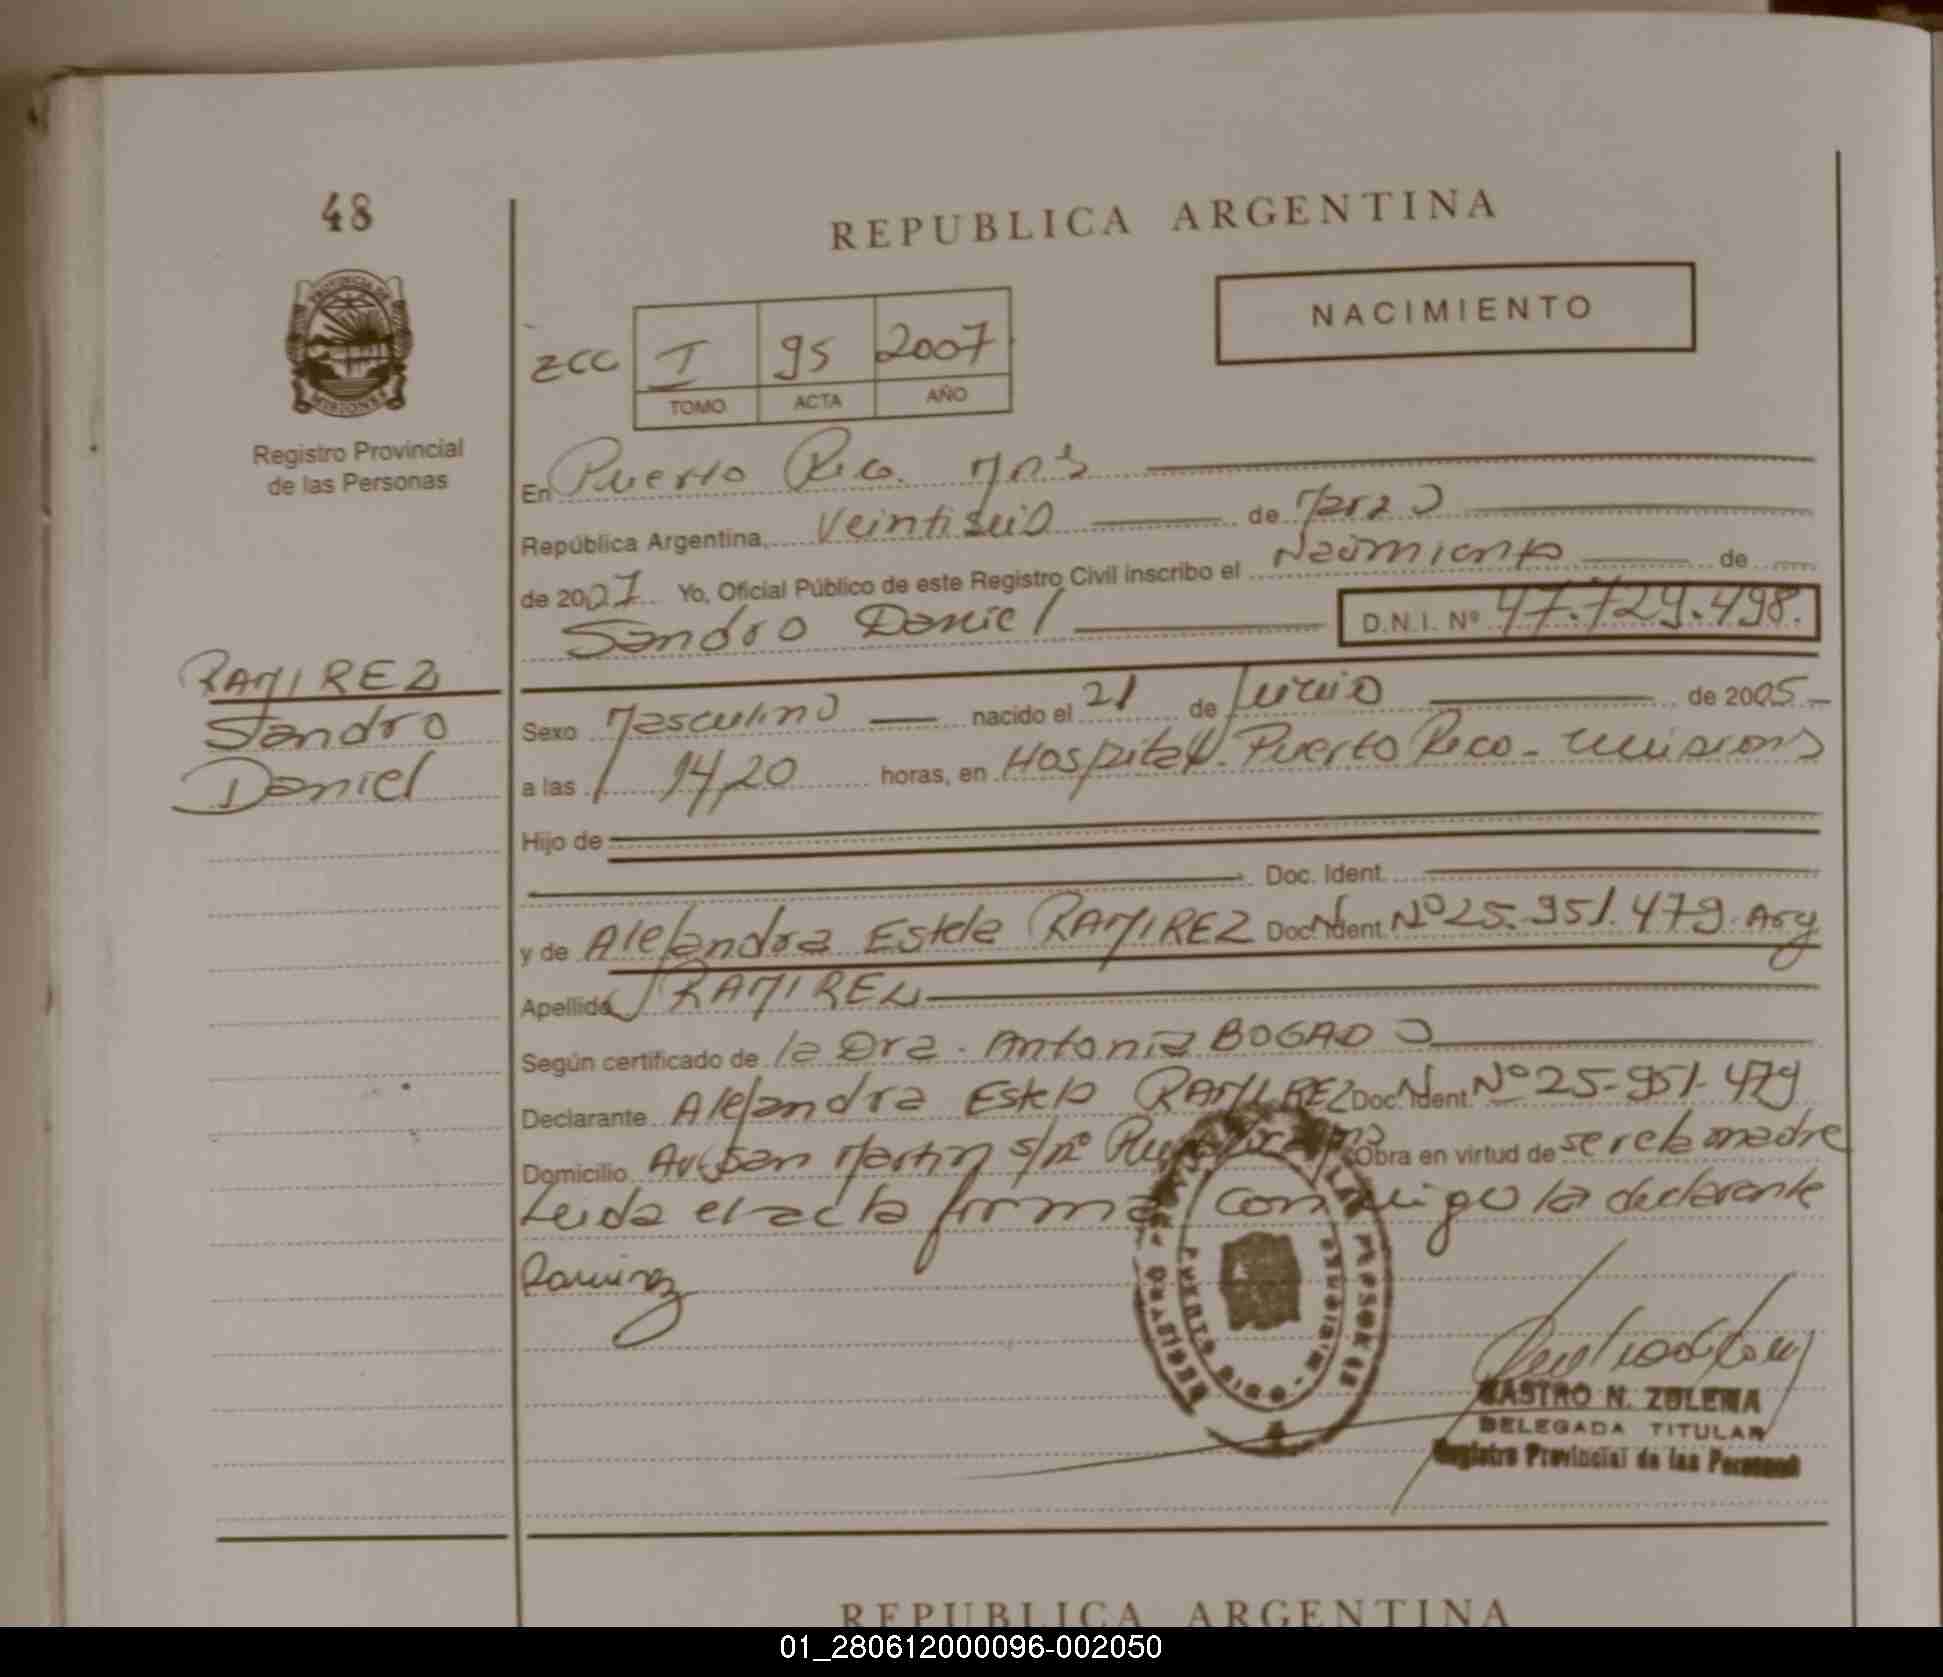 48
REPUBLICA ARGENTINA
NACIMIENTO
PROVINCIA DE
MISIONES
Registro Provincial
de las Personas
ZCC I 95 2007
TOMO ACTA AÑO
En Puerto Rico. Mns
República Argentina, Veintiseis de Marzo
de 2007 Yo, Oficial Público de este Registro Civil inscribo el Nacimiento de
Sandro Daniel D.N.I. Nº 47.729.498.
RAMIREZ
Sandro
Daniel
Sexo Masculino nacido el 21 de Junio de 2005
a las 14,20 horas, en Hospital. Puerto Rico - Misiones
Hijo de
Doc. Ident.
y de Alejandra Estela RAMIREZ Doc. Ident. Nº 25.951.479. Arg
Apellido RAMIREZ
Según certificado de la Dra. Antonia BOGADO
Declarante Alejandra Estela RAMIREZ Doc. Ident. Nº 25.951.479
Domicilio Av. San Martin s/nº Obra en virtud de ser la madre
Leida el acta firma conmigo la declarante
Ramirez
PUERTO RICO - MISIONES
CASTRO N. ZULEMA
DELEGADA TITULAR
Registro Provincial de las Personas
REPUBLICA ARGENTINA
01_280612000096-002050